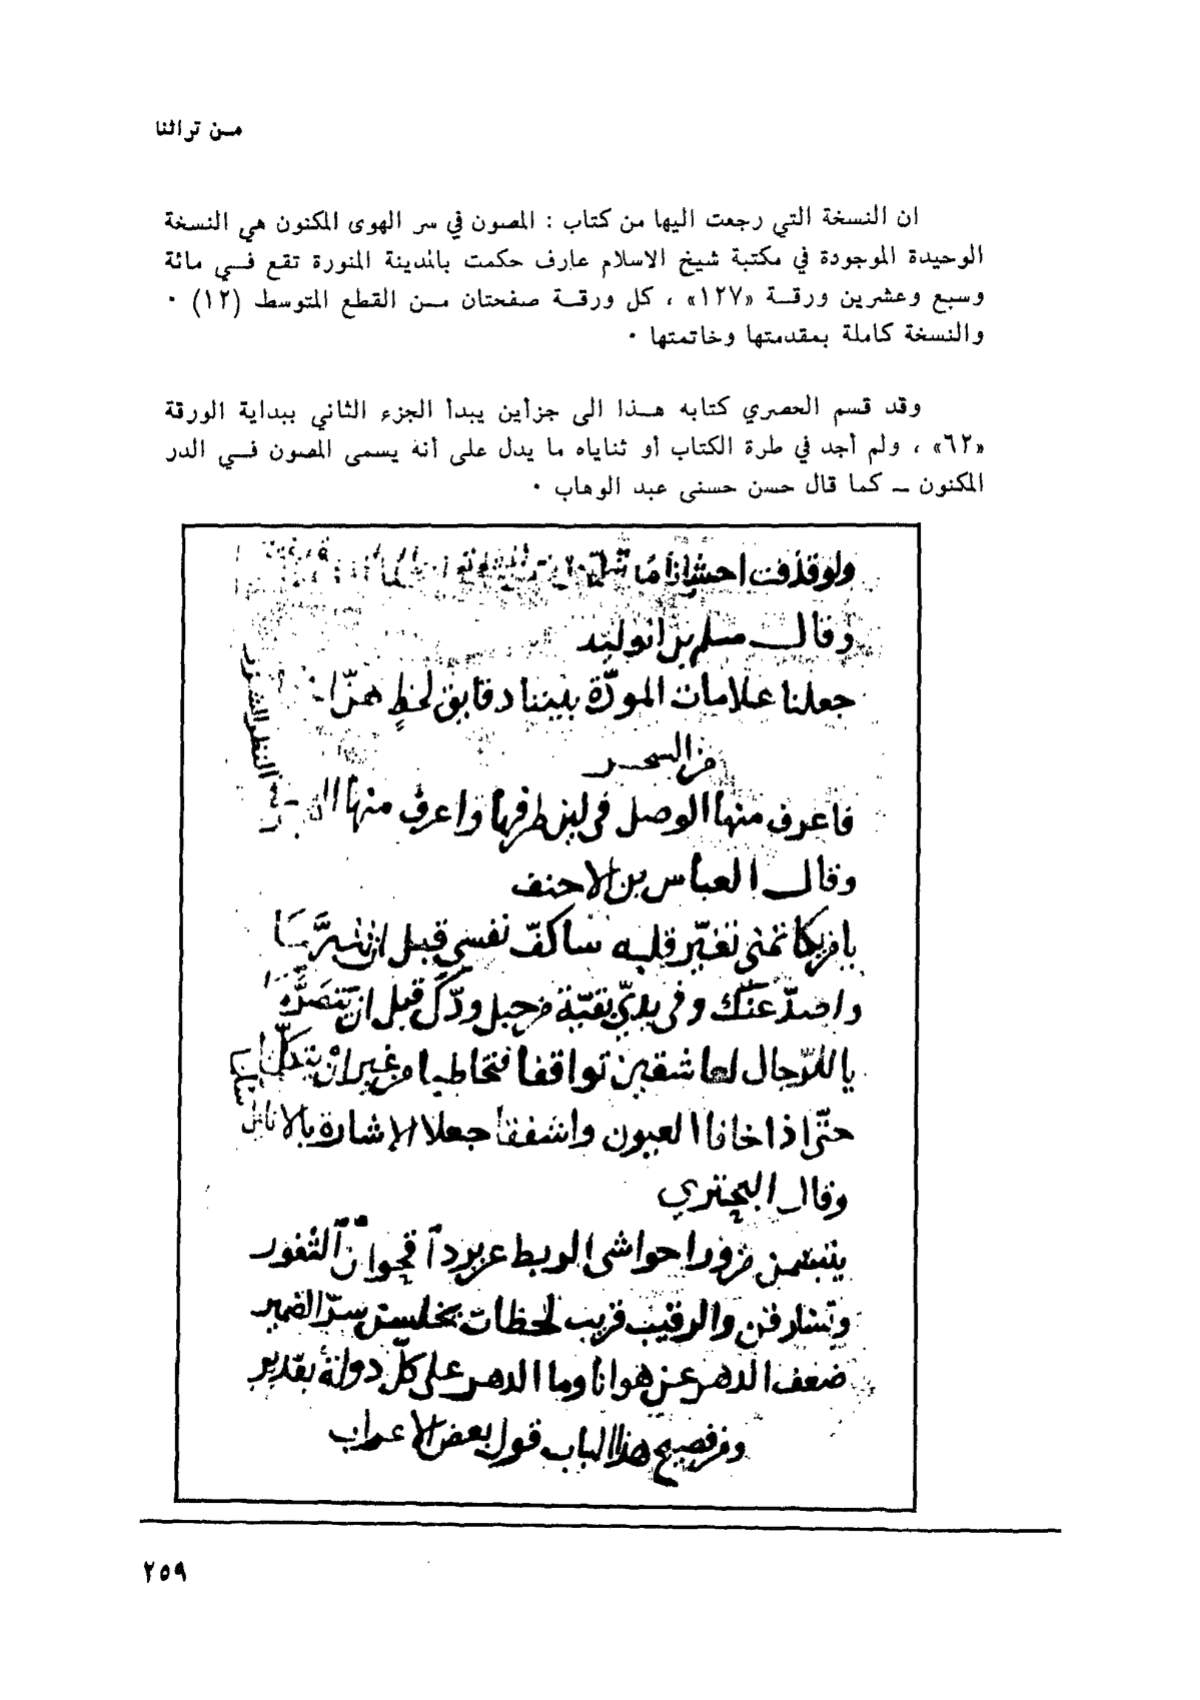 من تراثنا
ان النسخة التي رجعت اليها من كتاب : المصون في سر الهوى المكنون هي النسخة
الوحيدة الموجودة في مكتبة شيخ الاسلام عارف حكمت بالمدينة المنورة تقع في مائة
وسبع وعشرين ورقة «١٢٧» ، كل ورقة صفحتان من القطع المتوسط (١٢) ٠
والنسخة كاملة بمقدمتها وخاتمتها ٠
وقد قسم الحصري كتابه هذا الى جزأين يبدأ الجزء الثاني ببداية الورقة
«٦٢» ، ولم أجد في طرة الكتاب أو ثناياه ما يدل على أنه يسمى المصون في الدر
المكنون – كما قال حسن حسني عبد الوهاب ٠
ولو قذفت احشاؤنا ما
وقال مسلم بن الوليد
جعلنا علامات المودّة بيننا دقايق لحظٍ هنّ ا
من السحر
فاعرف منها الوصل في لين طرفها واعرف منها ال
النظر الشزر
وقال العباس بن الاحنف
ساكفّ نفسي قبل ان
واصدّ عنك وفي يديّ بقيّة من حبل ودّك قبل ان
يا للرّجال لعاشقين تواقفا فتخاطبا من غير ان
حتّى اذا خافا العيون واشفقا جعلا الإشارة بالانامل
وقال البحتري
يتبسمن من ورا حواشي الريط عن برد اقحوان الثغور
وتسارقن والرقيب قريب لحظات يختلسن سرّ الضمير
ضعف الدهر عن هوانا وما الدهر على كلّ دولة بقدير
ومن فصيح هذا الباب قول بعض الاعراب
٢٥٩